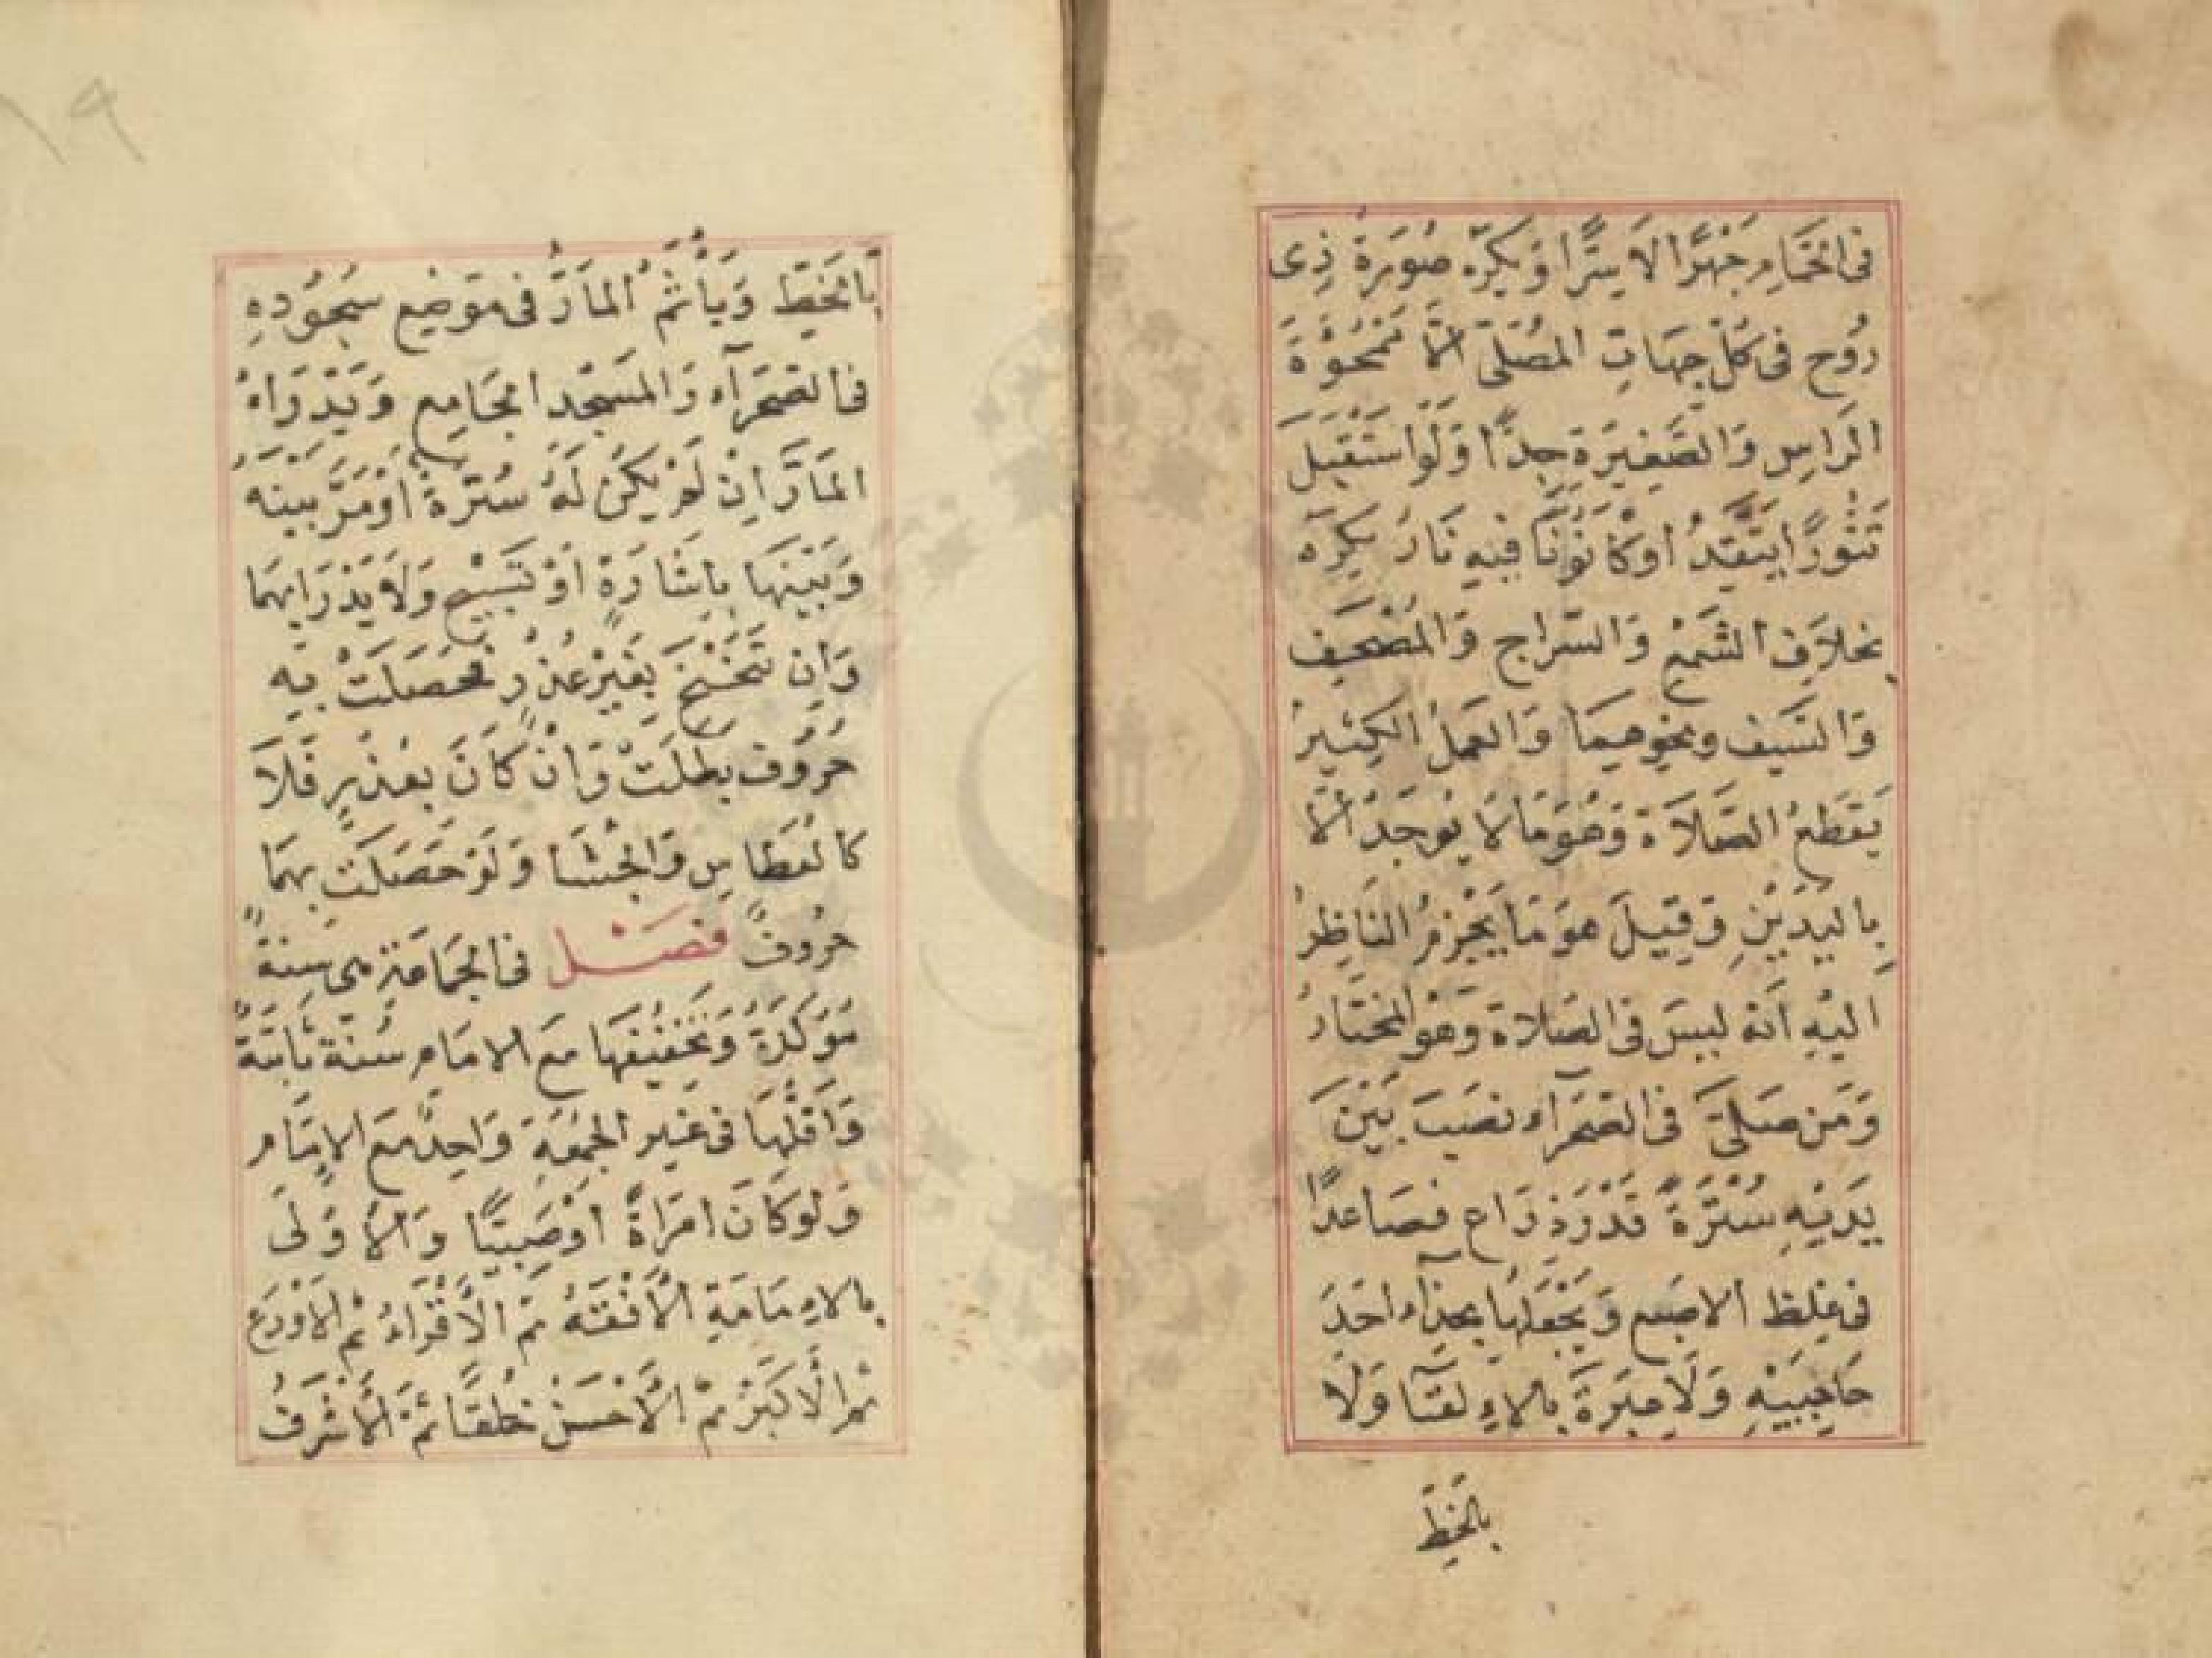 فى الحمام جَهْرًا لا سِرًّا وَيكرَه صُورَةُ ذِى
رُوحٍ فى كُلّ جِهَاتِ المُصَلّى الاَّ مَمْحُوَّةَ
الرَاسِ وَالصَّغِيرَةِ جِدًّا وَلَواسْتَقْبَلَ
تَنُّورًا يَتَّقِدُ اوْكَانُونًا فيهِ نَارٌ يكرَه
بخلاَفِ الشَّمْعِ وَالسّرَاجِ وَالمُصْحَفِ
وَالسَيف ونحوهِمَا وَالعَمَلُ الكثيرُ
يَقطَعُ الصَّلاَةَ وَهُوَمَا لا يُوجَدُ الاَّ
بِاليَدَيْنِ وَقِيلَ هوَ مَا يَجْزِمُ النَاظِرُ
اليْهِ اَنهُ ليسَ فى الصَلاة وَهُوَ المختَارُ
وَمَن صَلَّى فى الصَحرَآء نصَبَ بَيْنَ
يَدَيْهِ سُتْرَةً قَدْرَ ذِرَاعٍ فصَاعدًا
فى غلظ الاصبَع وَيَجْعَلهَا بحِذَآء احَدِ
حَاجِبَيْهِ وَلاَ عِبْرَةَ بالاِلقَآ وَلاَ
بالخَطِّ
بالخَطِّ وَيَأْثَمُ المَارُّ فى مَوضِع سُجُودِهِ
فى الصَحرَآء وَالمَسجدِ الجَامِعِ وَيَدْرَاءُ
المَارَّ اِن لَم يكنْ لَهُ سُترَةٌ اَوْمَرَّ بَيْنَهُ
وَبَيْنهَا بِاِشَارَةٍ اوْتَسْبِيحٍ وَلاَ يَدْرَا بِهِمَا
وَاِن تَنَحْنَحَ بِغَيْرِعُذرٍ فحصَلَتْ بِهِ
حُرُوف بَطلَتْ وَانْ كَانَ بعُذرٍ فَلاَ
كالعُطاسِ وَالجُشَا وَلَوْحَصَلَتْ بِهِمَا
حرُوفٌ فصَــل فى الجَمَاعَةِ هى سنةٌ
مُؤَكدَةٌ وَتخفيفهَا مَعَ الامَامِ سُنة ثابتَةٌ
وَاقلّهَا فى غيرِ الجُمُعَةِ وَاحِدٌ مَعَ الاِمَامِ
وَلوكَانَ امرَاةً اوْصَبِيًّا وَالاَوْلَى
بالاِمَامَةِ الاَفْقَهُ ثمّ الاَقْرَاءُ ثُم الاوْرَعُ
ثمَ الاَكبَرُ ثمّ الاَحْسَنُ خُلقًا ثمَّ الاَشْرَفُ
١٩